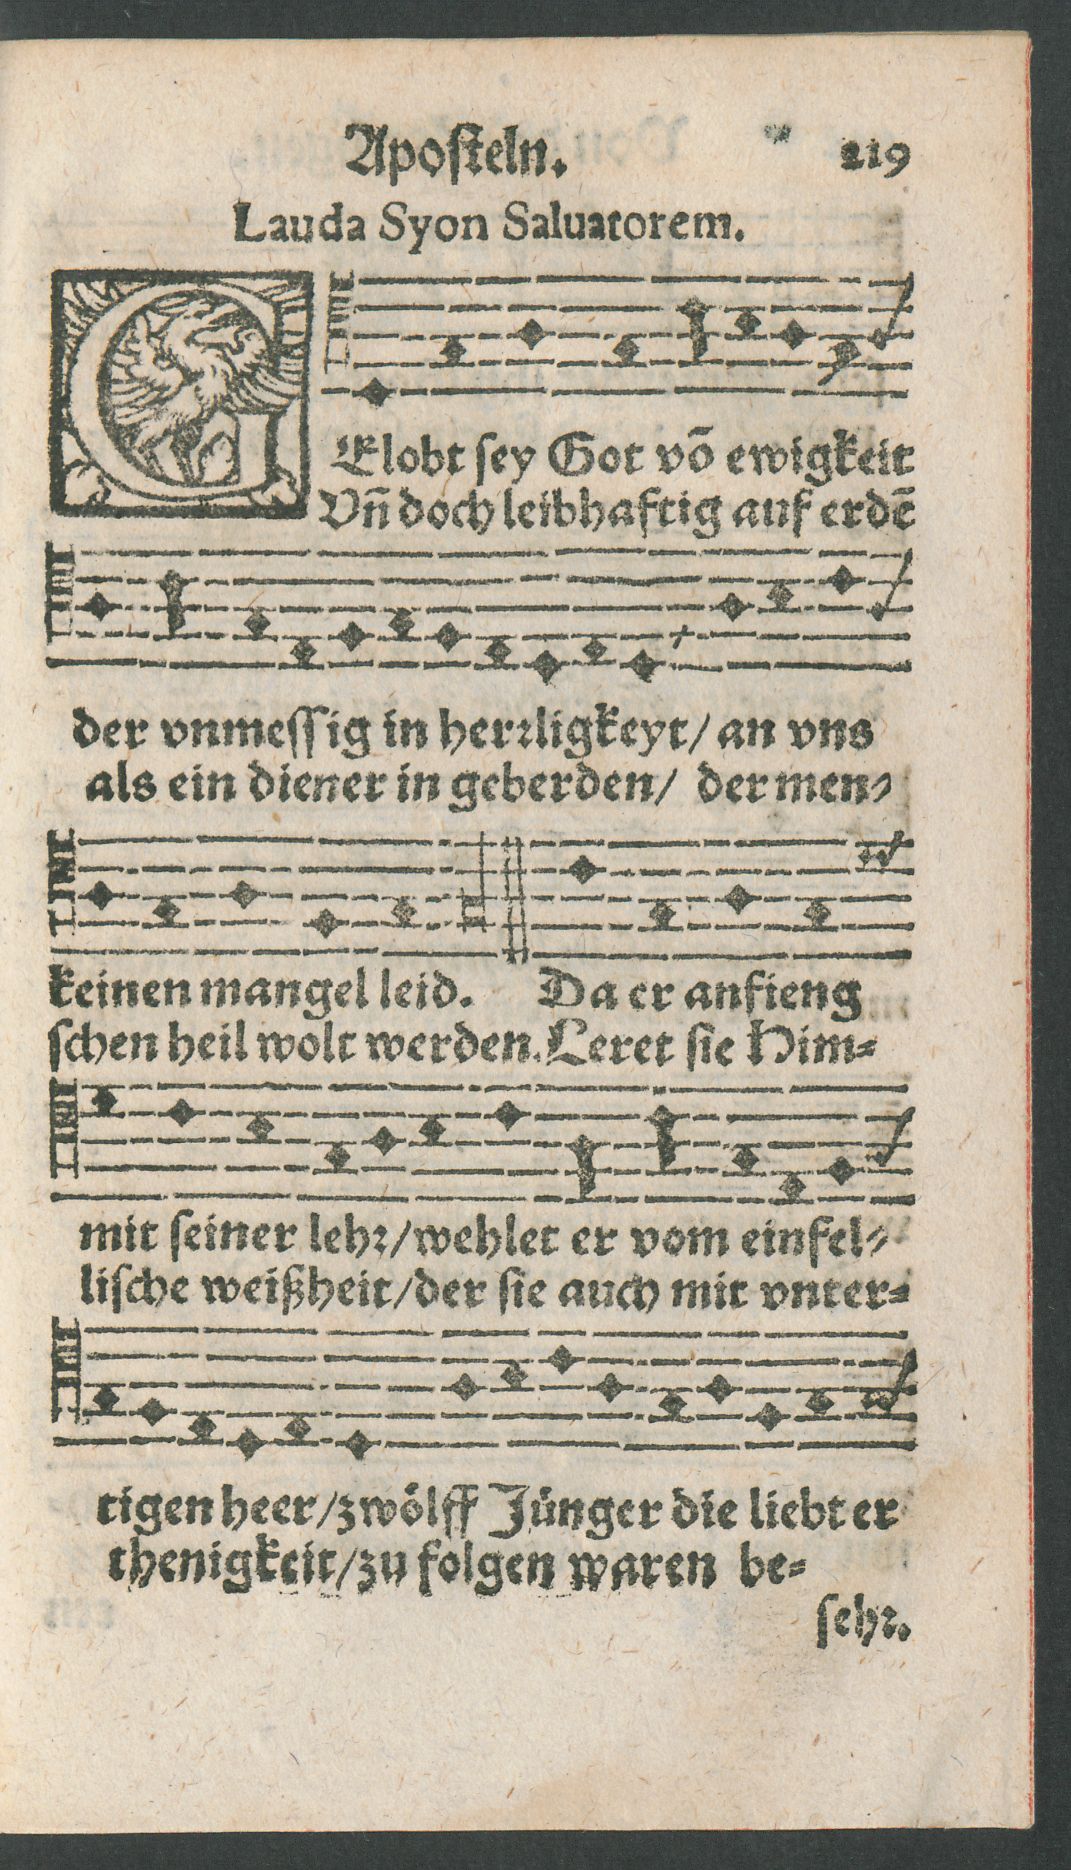 Aposteln. 219
Lauda Syon Saluatorem.
GElobt sey Got võ ewigkeit
Vñ doch leibhaftig auf erdẽ
der vnmessig in herꝛligkeyt/ an vns
als ein diener in geberden/ der men⸗
keinen mangel leid. Da er anfieng
schen heil wolt werden. Leret sie Him⸗
mit seiner lehꝛ/wehlet er vom einfel⸗
lische weißheit/der sie auch mit vnter⸗
tigen heer/zwölff Jünger die liebt er
thenigkeit/zu folgen waren be⸗
sehꝛ.